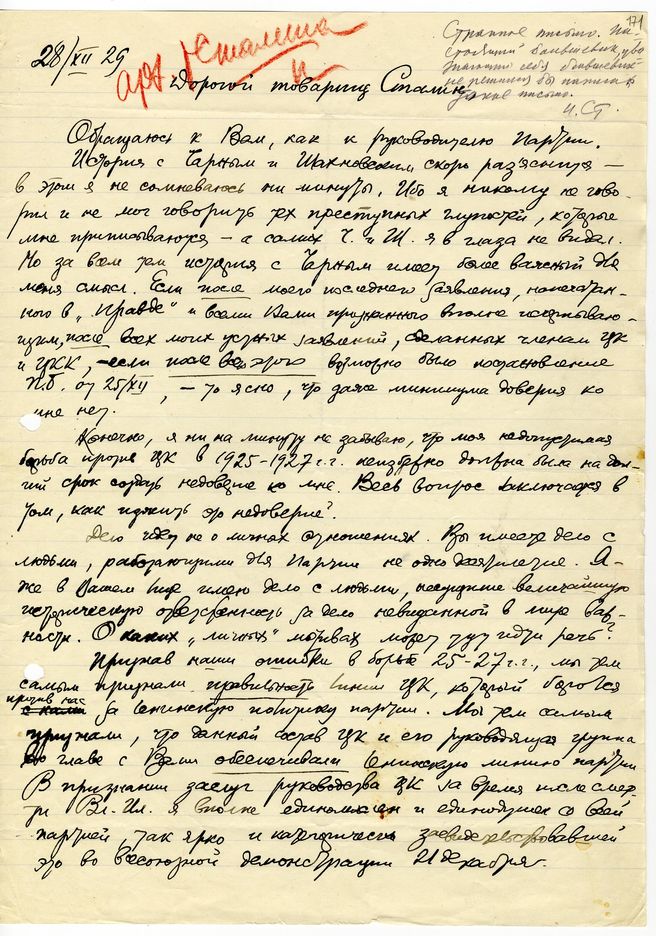 171
Странное письмо. На-
стоящий большевик,
знающий себя большевик
не решился бы написать
такое письмо.
И. Ст.
28/XII 29
арх. Сталина
Дорогой товарищ Сталин,
Обращаюсь к Вам, как к руководителю Партии.
История с Чарным и Шахновским скоро разъяснится —
в этом я не сомневаюсь ни минуты. Ибо я никому не гово-
рил и не мог говорить тех преступных глупостей, которые
мне приписываются — а самих Ч. и Ш. я в глаза не видал.
Но за всем тем история с Чарным имеет более важный для
меня смысл. Если после моего последнего заявления, напечатан-
ного в „Правде" и всеми Вами признанного вполне исчерпываю-
щим, после всех моих устных заявлений, сделанных членам ЦК
и ЦКК, — если после всего этого возможно было постановление
П.Б. от 25/XII, — то ясно, что даже минимума доверия ко
мне нет.
Конечно, я ни на минуту не забываю, что моя недопустимая
борьба против ЦК в 1925-1927 г.г. неизбежно должна была на дол-
гий срок создать недоверие ко мне. Весь вопрос заключается в
том, как изжить это недоверие?
Дело идет не о личных отношениях. Вы имеете дело с
людьми, работающими для Партии не одно десятилетие. Я-
же в Вашем лице имею дело с людьми, несущими величайшую
историческую ответственность за дело невиданной в мире важ-
ности. О каких „личных" мотивах может тут идти речь?
Признав наши ошибки в борьбе 25-27 г.г., мы тем
самым признали правильность линии ЦК, который боролся
против нас
за ленинскую политику партии. Мы тем самым
признали, что данный состав ЦК и его руководящая группа
во главе с Вами обеспечивали ленинскую линию партии
В признании заслуг руководства ЦК за время после смер-
ти Вл. Ил. я вполне единомыслен и единодушен со всей
партией, так ярко и категорически засвидетельствовавшей
это во всесоюзной демонстрации 21 декабря.